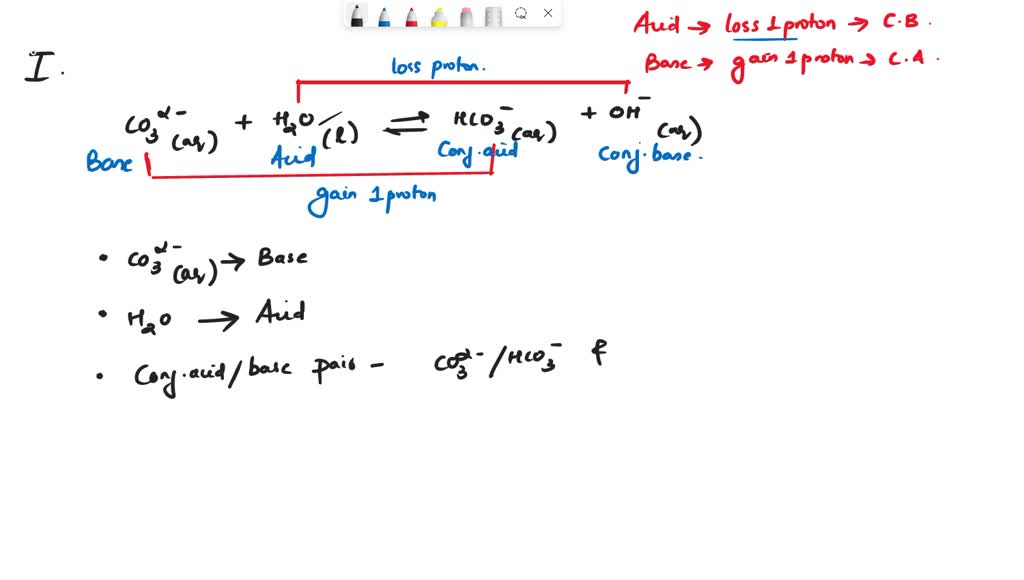 Acid → loss 1 proton → C.B.
Base → gain 1 proton → C.A.
I.
loss proton.
CO₃²⁻(aq) + H₂O(l) ⇌ HCO₃⁻(aq) + OH⁻(aq)
Base Acid Conj.acid Conj.base.
gain 1 proton
• CO₃²⁻(aq) → Base
• H₂O → Acid
• Conj.acid/base pair - CO₃²⁻/HCO₃⁻ &